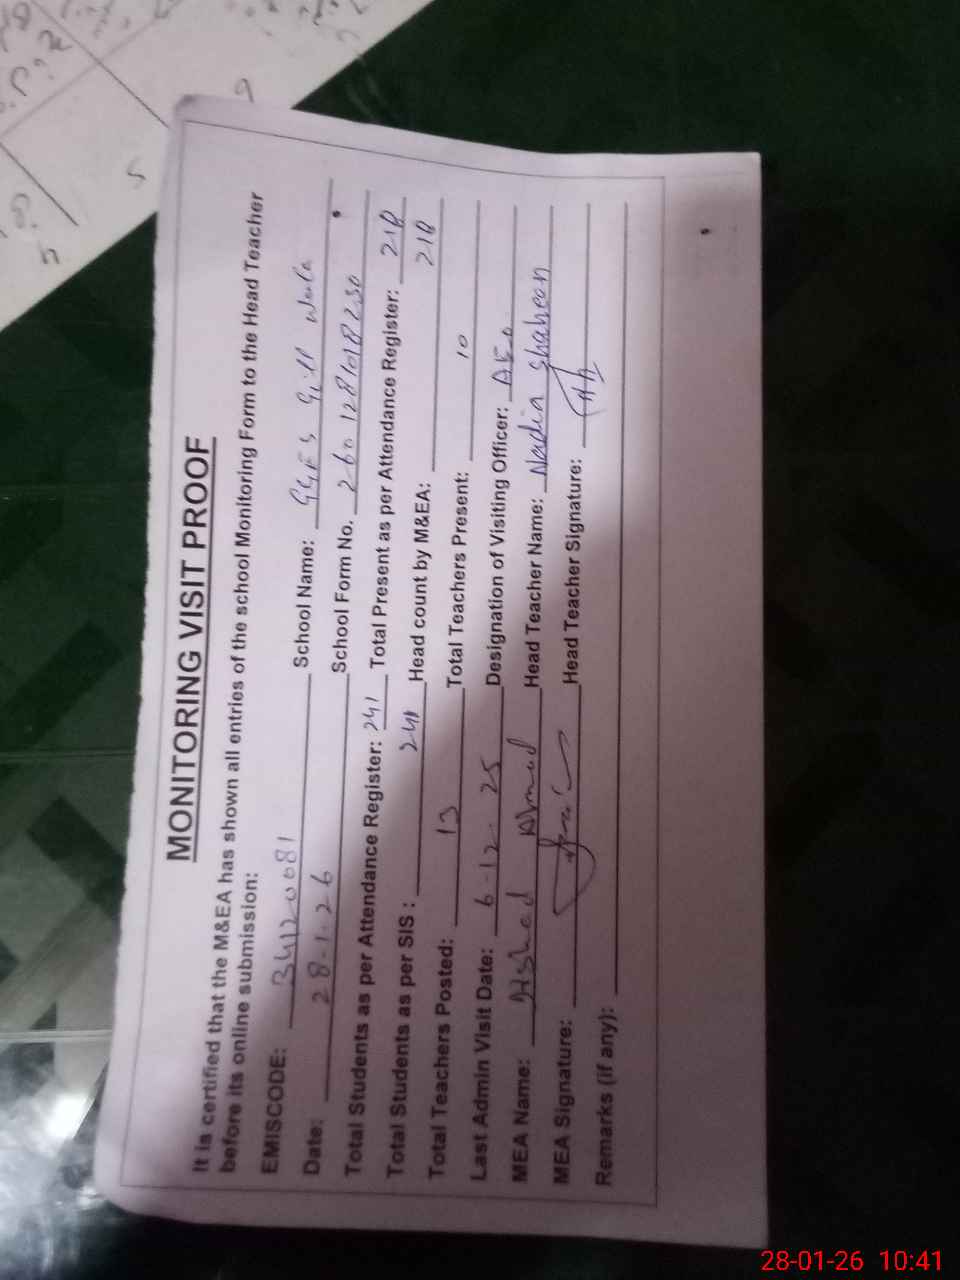 MONITORING VISIT PROOF
It is certified that the M&EA has shown all entries of the school Monitoring Form to the Head Teacher
before its online submission:
EMISCODE: 34120081 School Name: GGES Gill Wala
Date: 28.1.26 School Form No.
Total Students as per Attendance Register: 241 Total Present as per Attendance Register: 218
Total Students as per SIS : 241 Head count by M&EA: 218
Total Teachers Posted: 13 Total Teachers Present: 10
Last Admin Visit Date: 6-12-25 Designation of Visiting Officer: AEO
MEA Name: Ahmed Head Teacher Name: Nadia Shaheen
MEA Signature: Head Teacher Signature:
Remarks (if any):
28-01-26 10:41